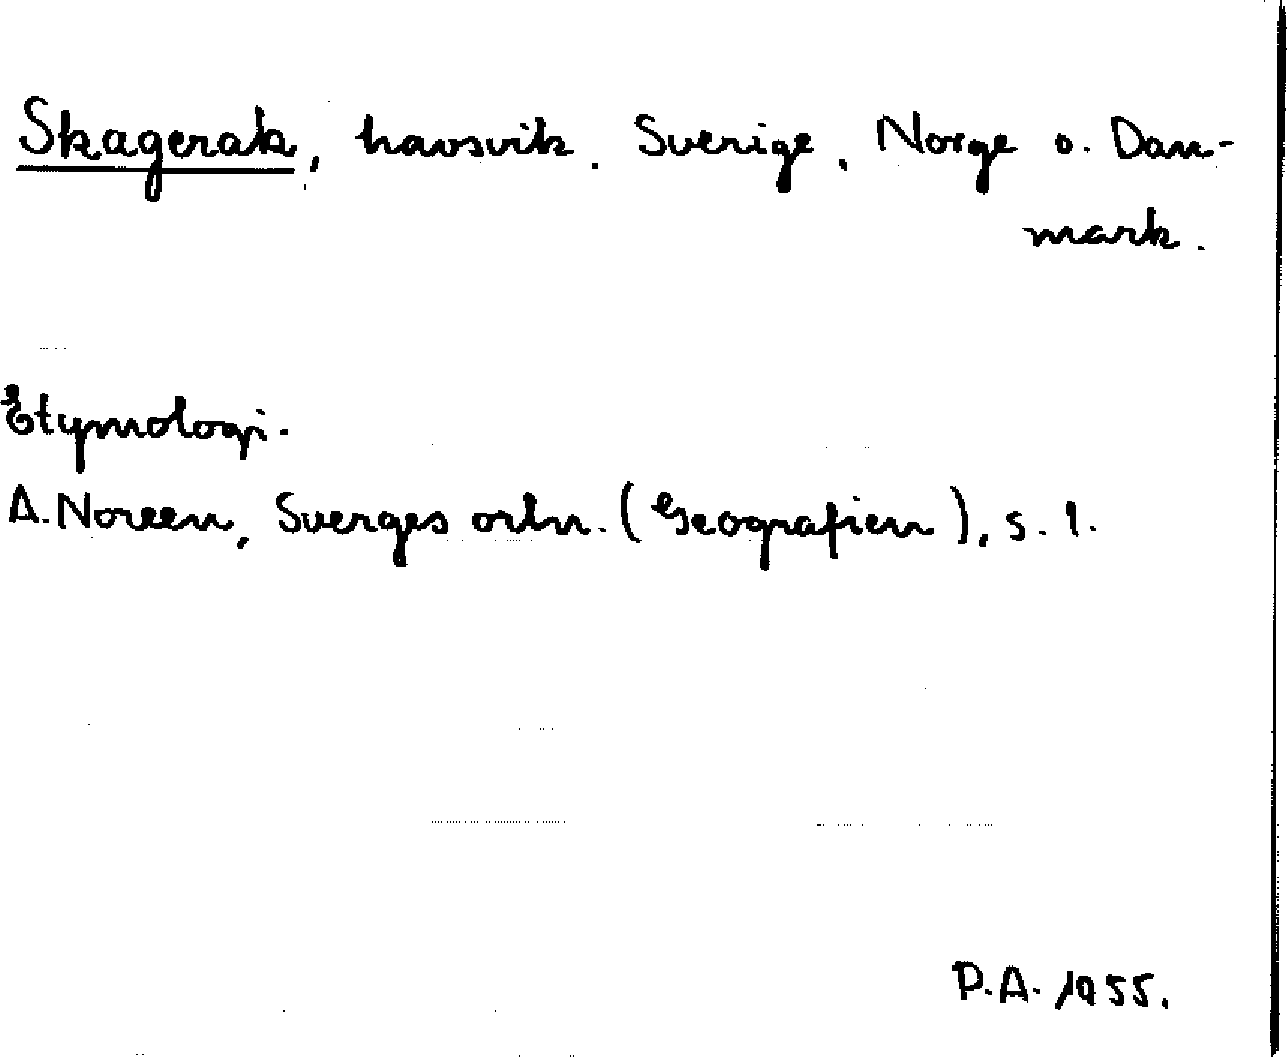 Skagerak, havsvik. Sverige, Norge o. Dan-
mark.
Etymologi.
A. Noreen, Sverges ortn. (Geografien), s. 1.
P.A. 1955.